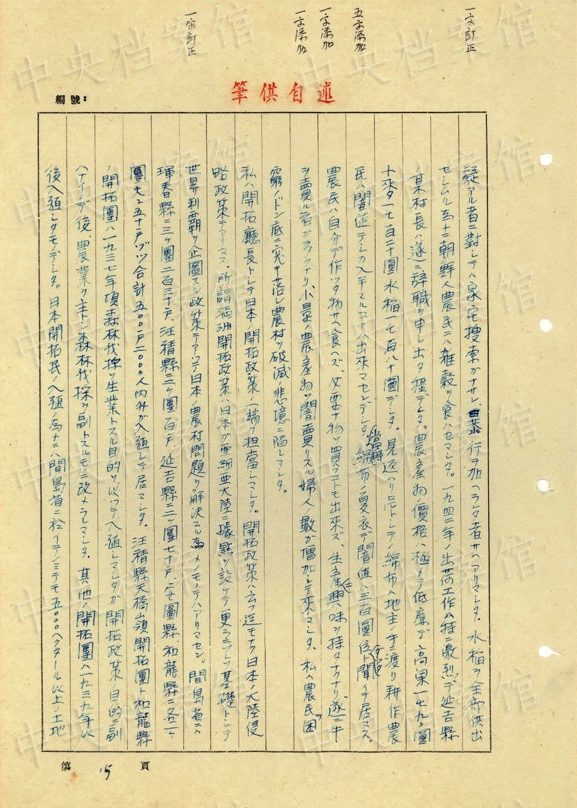 一字訂正
五字添加
一字添加
一字添加
一字訂正
述自供筆
編號:
疑アル者ニ對シテハ家宅搜索ガナサレ、暴行ヲ加ヘラレタ者サヘアリマシタ。水稻ヲ全部供出
セシムル為ニ朝鮮人農民ニハ雜穀ヲ食ハセマシタ。一九四二年ノ出荷工作ハ特ニ激烈デ延吉縣
某村長ハ遂ニ辭職ヲ申シ出タ程デシタ。農産物價格ハ極メテ低廉デ高粱一七九〇圓
十來タ一七百二十圓水稻一七百八十圓デシタ。見返ヘリ品トシテノ綿布ハ地主ノ手ニ渡リ耕作農
民ハ闇値デシカ入手スルコトハ出來マセンデシタ。綿紡ノ夏衣ガ闇値ハ三百圓位ト聞イテ居マス。
農民ハ自分デ作ッタ物サヘ食ヘズ、必要ナ物ヲ買フコトモ出來ズ、生産ニ興味ヲ持タナクナリ、遂ニ牛
ヲ賣ル者ガ多クナリ、小量ノ農産物ヲ闇賣リスル婦人ノ數ガ增加シテ來マシタ。私ハ農民ヲ困
窮ノドン底ニ突キ落シ農村ヲ破滅ノ悲境ニ陷レマシタ。
私ハ開拓廳長トシテ日本ノ開拓政策ノ一端ヲ担當シマシタ。開拓政策ハ云フ迄モナク日本ノ大陸侵
略政策デアリマス。所謂滿洲開拓政策ハ日本ガ亜細亜大陸ニ據點ヲ設ケテ更ニ之ヲ基礎トシテ
世界制覇ヲ企圖スル政策デアッテ日本ノ農村問題ヲ解決スル為メノモノデハアリマセン。間島省ニハ
琿春縣ニ三ヶ團二百三十戶、汪清縣ニ二ヶ團一百戶、延吉縣ニ二ヶ團七十戶、安圖縣、和龍縣ニ各一ヶ
團夫々五十戶ヅツ合計五〇〇戶二〇〇〇人内外ガ入植シテ居マシタ。汪清縣天橋嶺開拓團ト和龍縣
ノ開拓團ハ一九三七年頃森林伐採ヲ生業トスル目的ヲ以ッテ入植シマシタガ開拓政策ノ目的ニ副
ハナイノデ後、農業ヲ主トシ森林伐採ヲ副トスルモノニ改メラレマシタ。其他ノ開拓團ハ一九三九年以
後入植シタモノデシタ。日本開拓民ノ入植ノ為ニハ間島省ニ於イテノミデモ五〇〇〇ヘクタール以上ノ土地
第 15 頁
中央档案馆